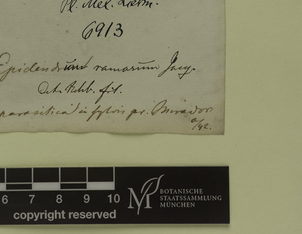 Pl. Mex. Liebm.
6913
Epidendrum ramosum Jacq.
det. Rchb. fil.
parasitica in sylvis pr. Mirador
/42.
6 7 8 9 10
copyright reserved
BOTANISCHE
STAATSSAMMLUNG
MÜNCHEN